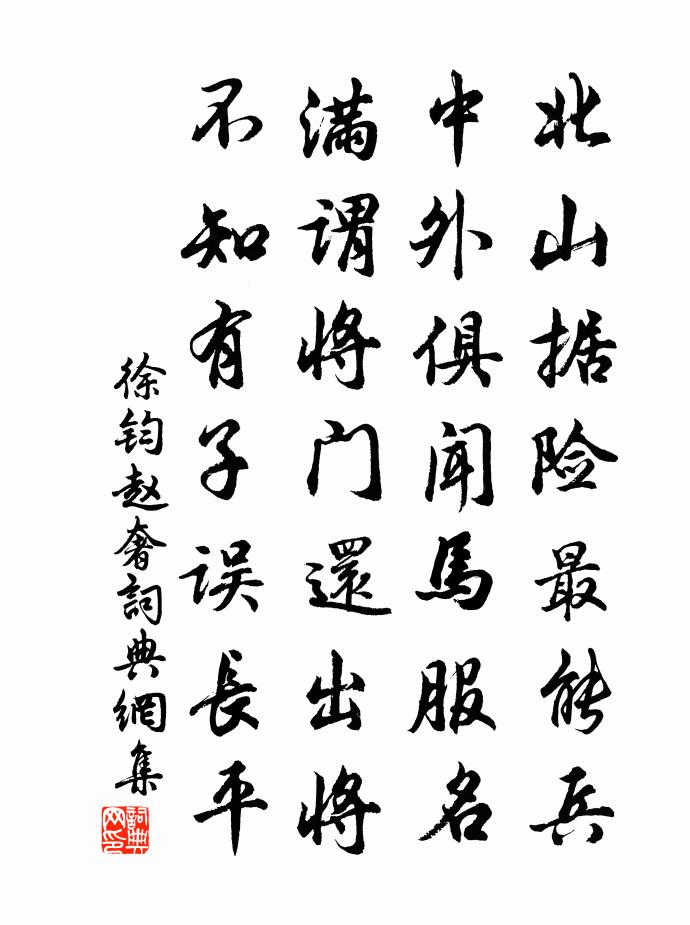 北山据险最能兵
中外俱闻馬服名
满谓将门還出将
不知有子误長平
徐钧赵奢詞典網集
詞典网印